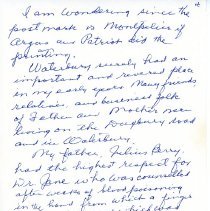 I am wondering since the
post mark is Montpelier if
Argus and Patriot did the
printing.
Waterbury surely had an
important and revered place
in my early years. Many friends,
relatives, and business folk
of Father and Mother were
living on the Duxbury road
and in Waterbury.
My father, Julius Perry,
had the highest respect for
Dr. Jane who was committed
after weeks of blood poisoning
in the hand from which a finger